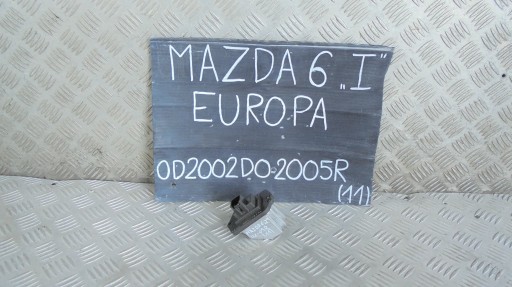 MAZDA 6 „I”
EUROPA
OD2002DO2005R
(11)